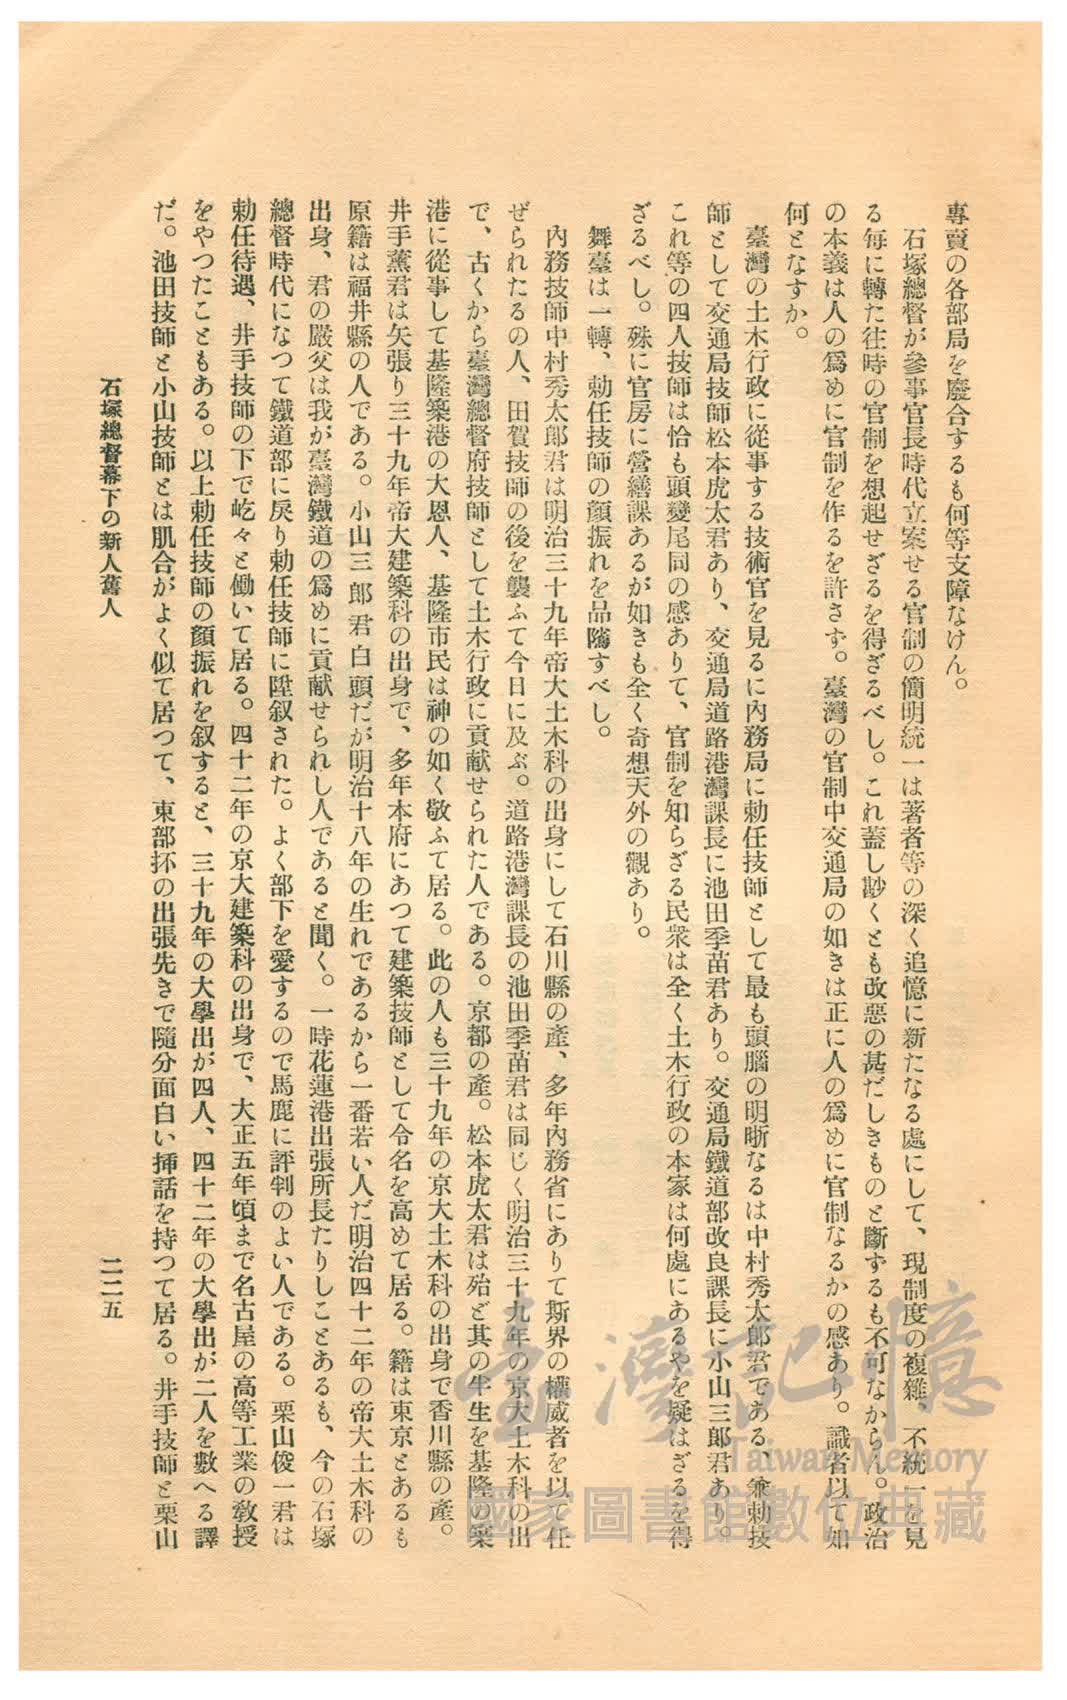 專賣の各部局を廢合するも何等支障なけん。
石塚總督が參事官長時代立案せる官制の簡明統一は著者等の深く追憶に新たなる處にして、現制度の複雜、不統一を見
る每に轉た往時の官制を想起せざるを得ざるべし。これ蓋し尠くとも改惡の甚だしきものと斷ずるも不可なからん。政治
の本義は人の爲めに官制を作るを許さず。臺灣の官制中交通局の如きは正に人の爲めに官制なるかの感あり。識者以て如
何となすか。
臺灣の土木行政に從事する技術官を見るに內務局に勅任技師として最も頭腦の明晰なるは中村秀太郞君である、兼勅技
師として交通局技師松本虎太君あり、交通局道路港灣課長に池田季苗君あり。交通局鐵道部改良課長に小山三郞君あり。
これ等の四人技師は恰も頭變尾同の感ありて、官制を知らざる民衆は全く土木行政の本家は何處にあるやを疑はざるを得
ざるべし。殊に官房に營繕課あるが如きも全く奇想天外の觀あり。
舞臺は一轉、勅任技師の顏振れを品隲すべし。
內務技師中村秀太郞君は明治三十九年帝大土木科の出身にして石川縣の產、多年內務省にありて斯界の權威者を以て任
ぜられたるの人、田賀技師の後を襲ふて今日に及ぶ。道路港灣課長の池田季苗君は同じく明治三十九年の京大土木科の出
で、古くから臺灣總督府技師として土木行政に貢献せられた人である。京都の產。松本虎太君は殆ど其の半生を基隆の築
港に從事して基隆築港の大恩人、基隆市民は神の如く敬ふて居る。此の人も三十九年の京大土木科の出身で香川縣の產。
井手薰君は矢張り三十九年帝大建築科の出身で、多年本府にあつて建築技師として令名を高めて居る。籍は東京とあるも
原籍は福井縣の人である。小山三郞君白頭だが明治十八年の生れであるから一番若い人だ明治四十二年の帝大土木科の
出身、君の嚴父は我が臺灣鐵道の爲めに貢献せられし人であると聞く。一時花蓮港出張所長たりしことあるも、今の石塚
總督時代になつて鐵道部に戾り勅任技師に陞叙された。よく部下を愛するので馬鹿に評判のよい人である。栗山俊一君は
勅任待遇、井手技師の下で屹々と働いて居る。四十二年の京大建築科の出身で、大正五年頃まで名古屋の高等工業の敎授
をやつたこともある。以上勅任技師の顏振れを叙すると、三十九年の大學出が四人、四十二年の大學出が二人を數へる譯
だ。池田技師と小山技師とは肌合がよく似て居つて、東部抔の出張先きで隨分面白い揷話を持つて居る。井手技師と栗山
石塚總督幕下の新人舊人
二二五
臺灣記憶
Taiwan Memory
國家圖書館數位典藏